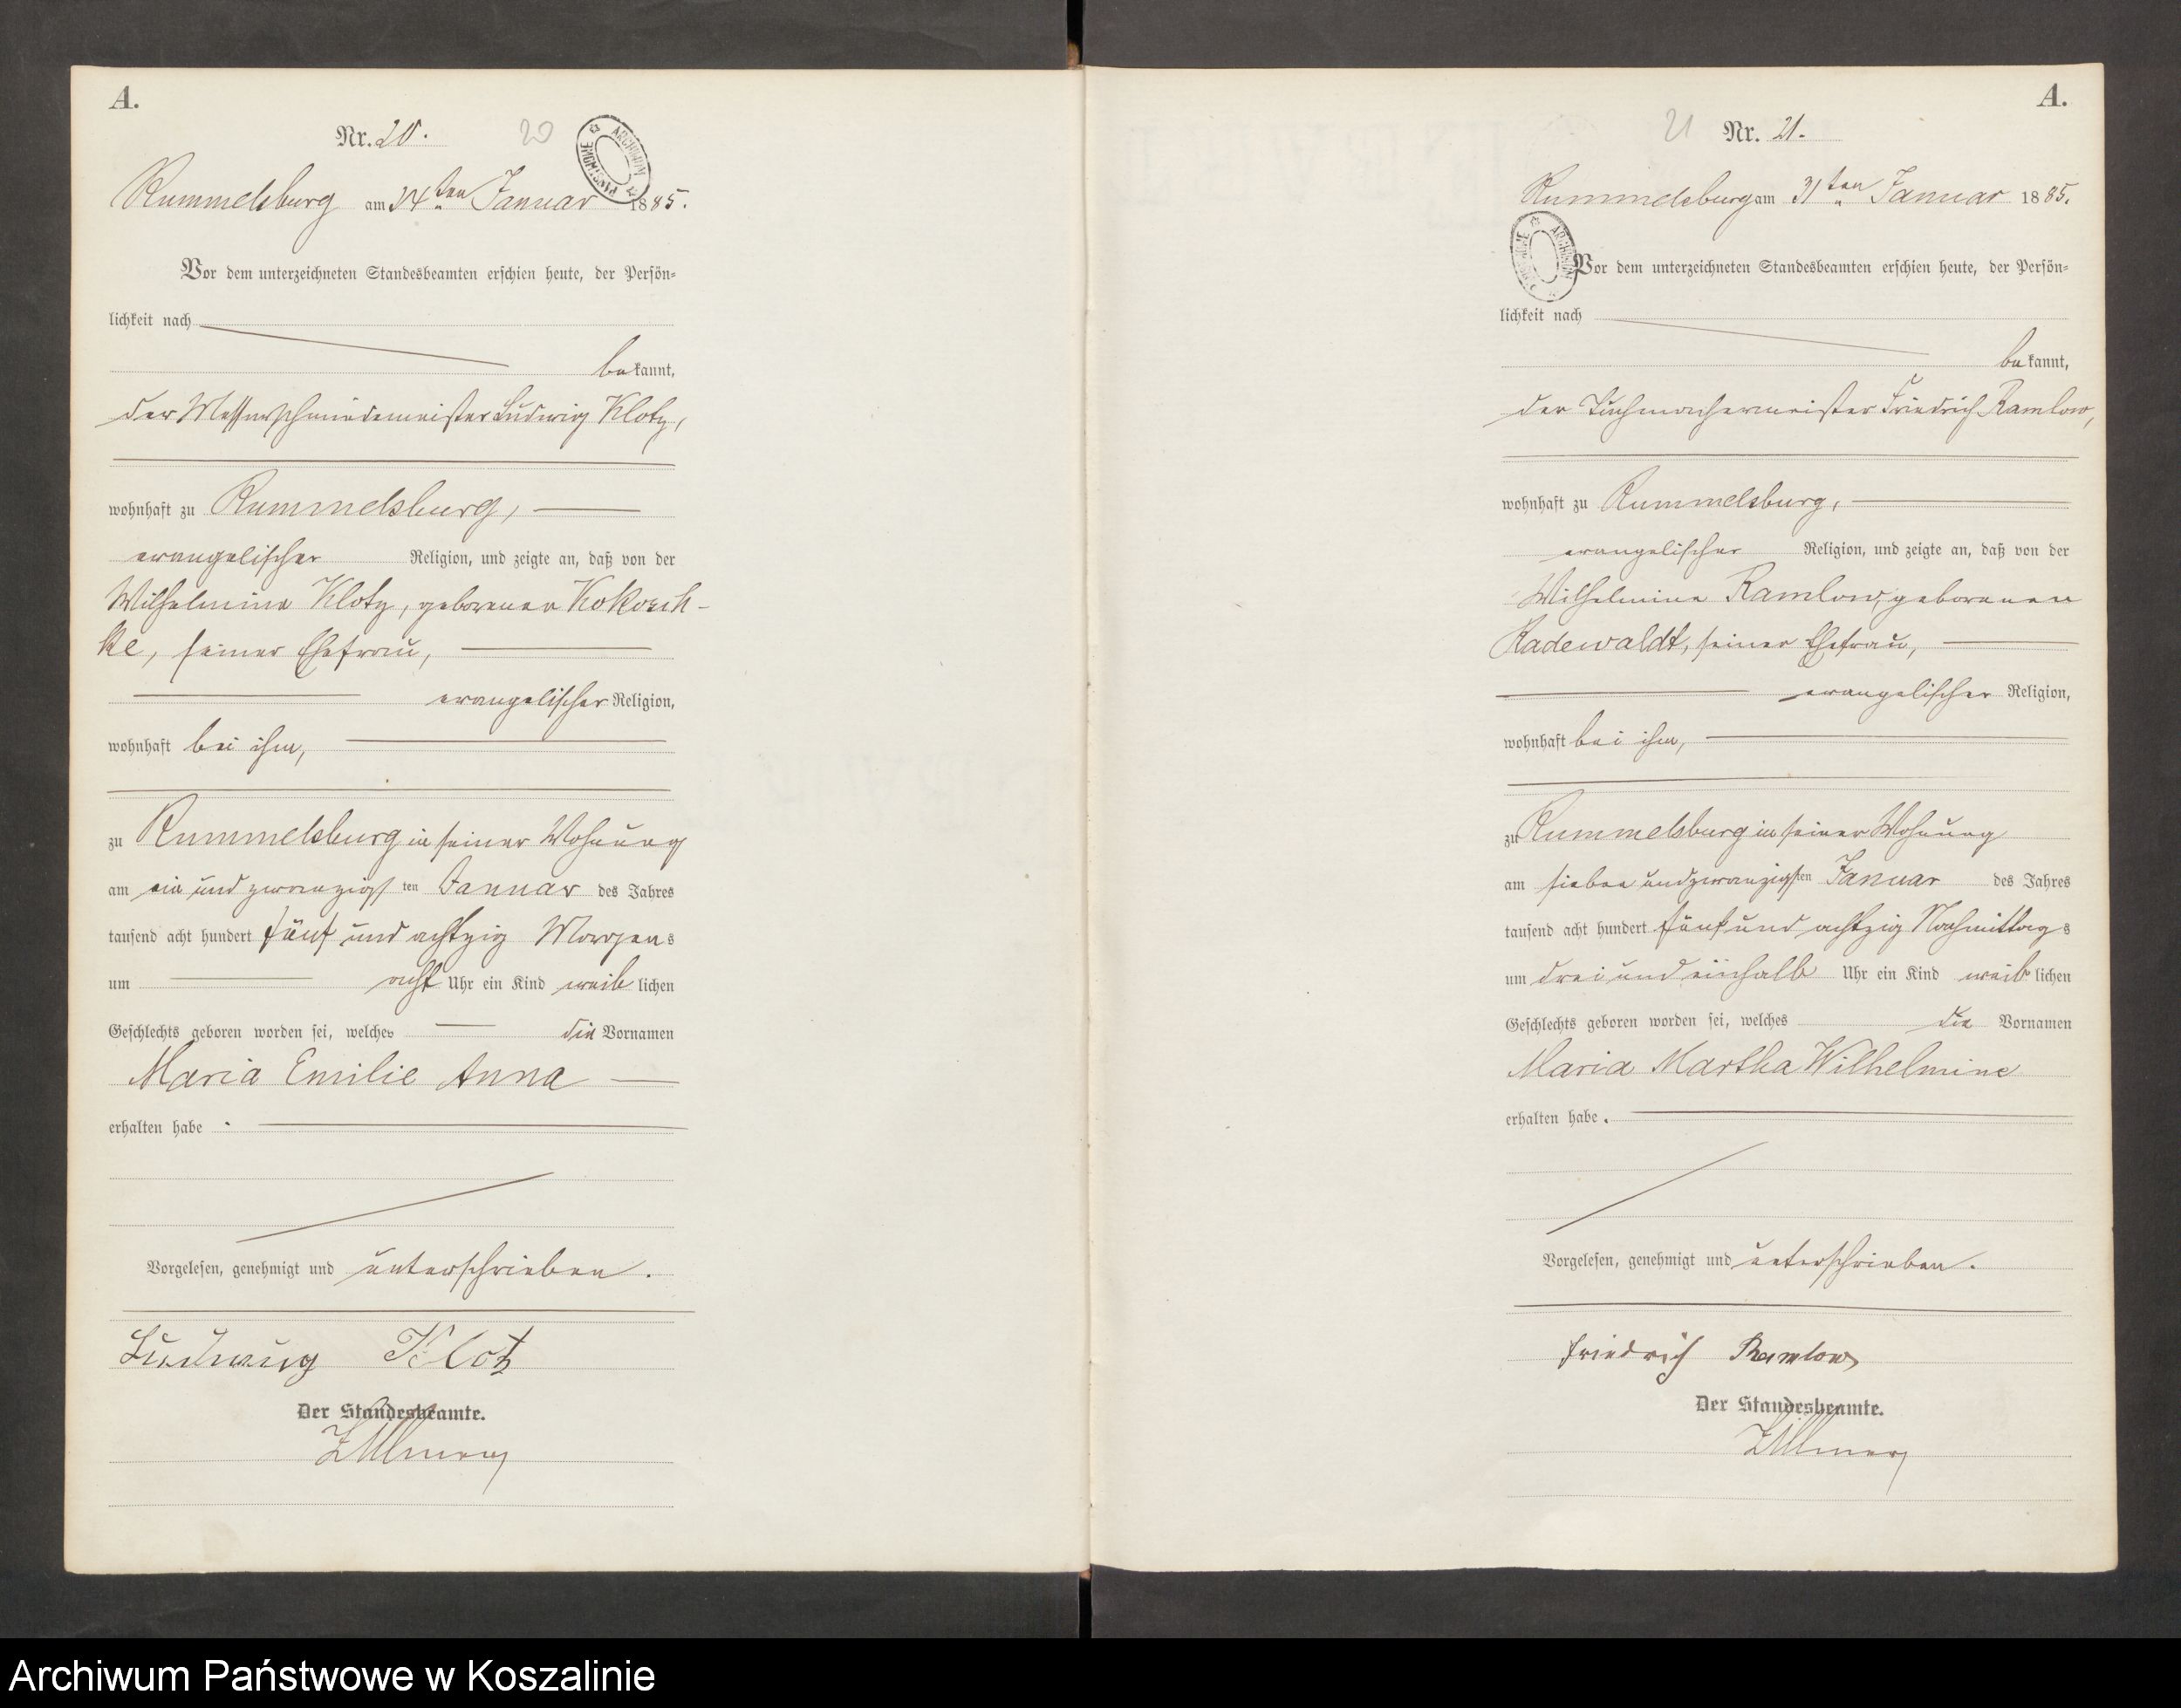 A.
Nr. 20.
20
ARCHIWUM PAŃSTWOWE
Rummelsburg am ten Januar 1885.
Vor dem unterzeichneten Standesbeamten erschien heute, der Persön-
lichkeit nach
bekannt,
der Messerschmiedemeister Ludwig Klotz,
wohnhaft zu Rummelsburg,
evangelischer Religion, und zeigte an, daß von der
Wilhelmine Klotz, geborenen Kokosch-
ke, seiner Ehefrau,
evangelischer Religion,
wohnhaft bei ihm,
zu Rummelsburg in seiner Wohnung
am ein und zwanzigsten Januar des Jahres
tausend acht hundert fünf und achtzig Morgens
um acht Uhr ein Kind weiblichen
Geschlechts geboren worden sei, welches die Vornamen
Maria Emilie Anna
erhalten habe.
Vorgelesen, genehmigt und unterschrieben.
Ludwig Klotz
Der Standesbeamte.
A.
21 Nr. 21.
Rummelsburg am 31ten Januar 1885.
ARCHIWUM PAŃSTWOWE
Vor dem unterzeichneten Standesbeamten erschien heute, der Persön-
lichkeit nach
bekannt,
der Tuchmachermeister Friedrich Ramlow,
wohnhaft zu Rummelsburg,
evangelischer Religion, und zeigte an, daß von der
Wilhelmine Ramlow, geborenen
Radewaldt, seiner Ehefrau,
evangelischer Religion,
wohnhaft bei ihm,
zu Rummelsburg in seiner Wohnung
am sieben und zwanzigsten Januar des Jahres
tausend acht hundert fünf und achtzig Nachmittags
um drei und einhalb Uhr ein Kind weiblichen
Geschlechts geboren worden sei, welches die Vornamen
Maria Martha Wilhelmine
erhalten habe.
Vorgelesen, genehmigt und unterschrieben.
Friedrich Ramlow
Der Standesbeamte.
Archiwum Państwowe w Koszalinie